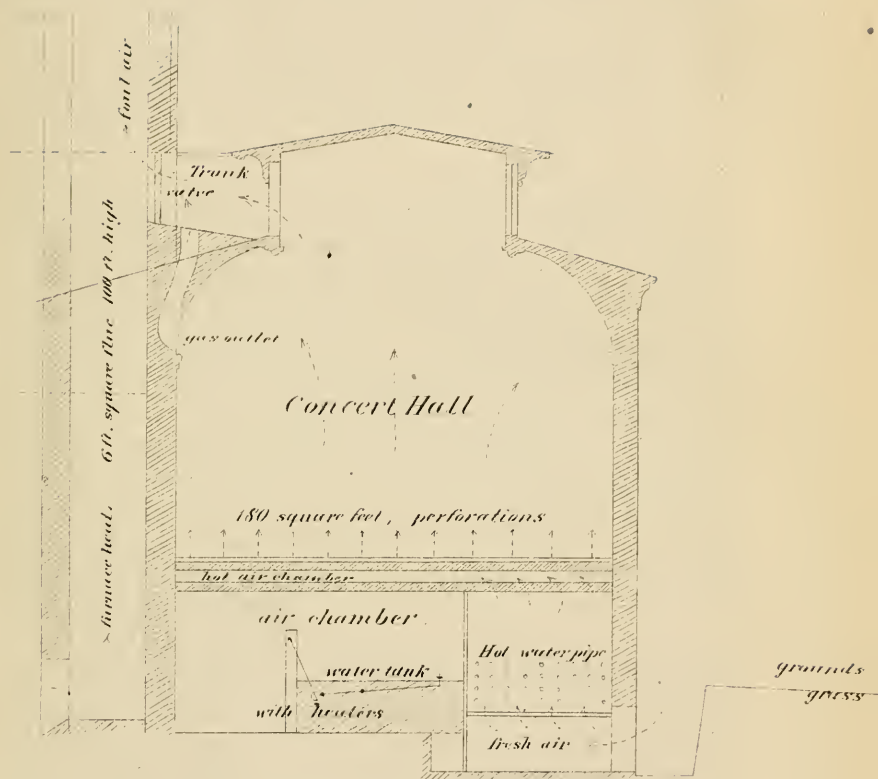 foul air
6 ft. square flue 100 ft. high
furnace heat.
Trunk
valve
gas outlet
Concert Hall
180 square feet, perforations
hot air chamber
air chamber
water tank
with heaters
Hot water pipe
fresh air
grounds
grass